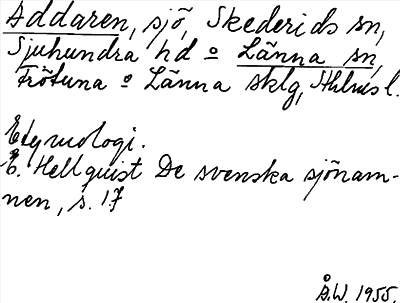 Addaren, sjö, Skederids sn,
Sjuhundra hd o Länna sn,
Frötuna o Länna sklg, Sthlms l.
Etymologi.
E. Hellquist De svenska sjönam-
nen, s. 17
Å.W. 1955.